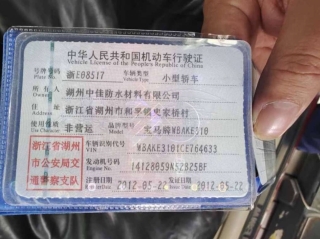 中华人民共和国机动车行驶证
Vehicle License of the People's Republic of China
号牌号码 浙E08517 车辆类型 小型轿车
Plate No. Vehicle Type
所有人 湖州中佳防水材料有限公司
Owner
住址 浙江省湖州市和孚镇史家桥村
Address
使用性质 非营运 品牌型号 宝马牌WBAKE310
Use Character Model
浙江省湖州市公安局交通警察支队
车辆识别代号 WBAKE3101CE764633
VIN
发动机号码
Engine No.
注册日期 2012-05-22 发证日期 2012-05-22